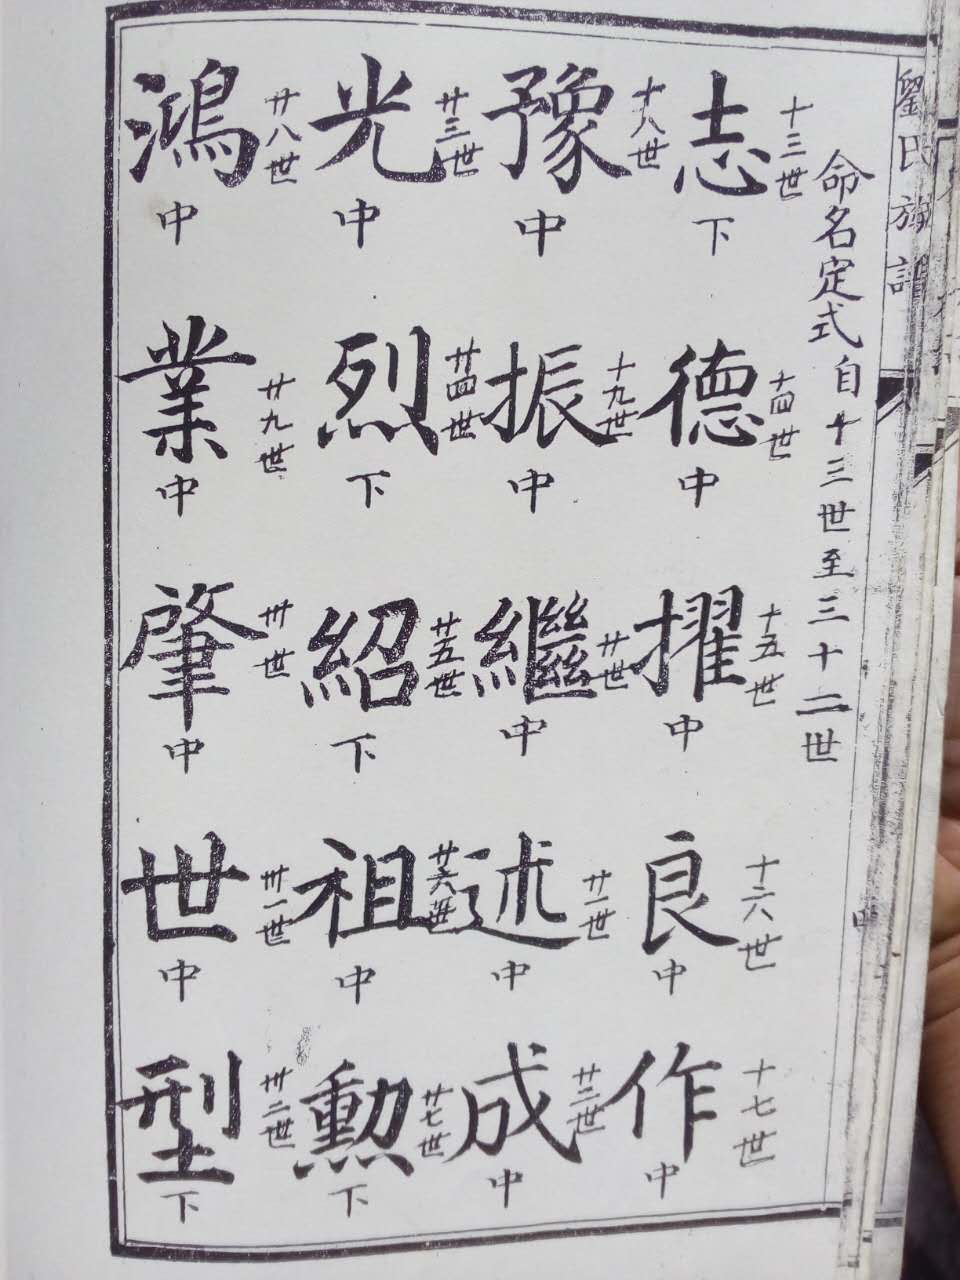 劉氏族譜
命名定式自十三世至三十二世
十三世
志
下
十四世
德
中
十五世
擢
中
十六世
良
中
十七世
作
中
十八世
豫
中
十九世
振
中
廿世
繼
中
廿一世
述
中
廿二世
成
中
廿三世
光
中
廿四世
烈
下
廿五世
紹
下
廿六世
祖
中
廿七世
勲
下
廿八世
鴻
中
廿九世
業
中
卅世
肇
中
卅一世
世
中
卅二世
型
下